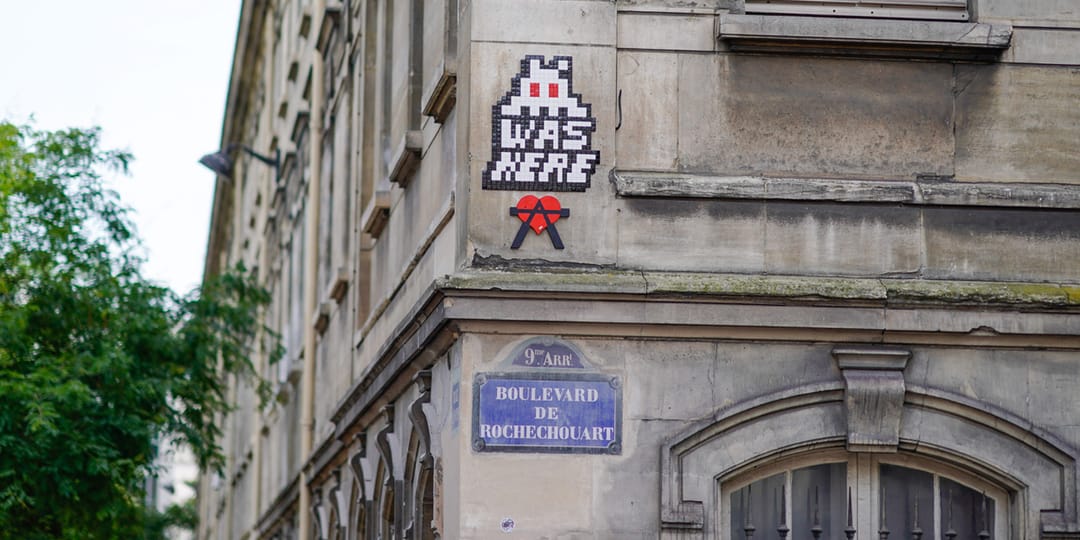 WAS
HERE
A
9me ARRt
BOULEVARD
DE
ROCHECHOUART